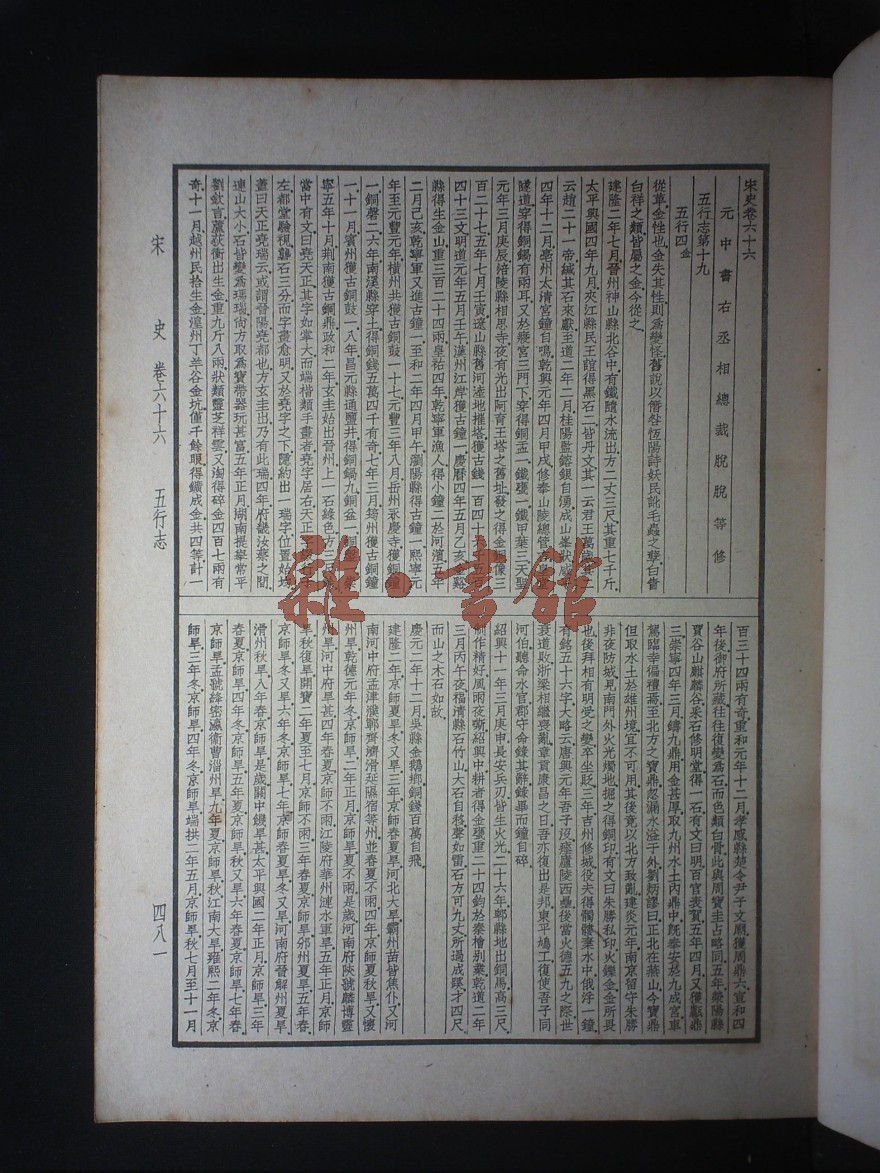 宋史卷六十六
元中書右丞相總裁脫脫等修
五行志第十九
五行四金
從革金性也金失其性則爲變怪舊說以僭咎恆陽詩妖民訛毛蟲之孽白眚
白祥之類皆屬之金今從之
建隆二年七月晉州神山縣北谷中有鐵隨水流出方二丈三尺其重七千斤
太平興國四年九月夾江縣民王誼得黑石二皆丹文其一云君王萬歲其二
云趙二十一帝緘其石來獻至道二年二月桂陽監鎔銀自湧成山峯狀咸平
四年十二月亳州太清宮鐘自鳴乾興元年四月甲戌修泰山陵總管
隧道穿得銅鍋有兩耳又於癈宮三門下穿得銅盂一鐵甕一鐵甲葉三天聖
元年三月庚辰涪陵縣相思寺夜有光出阿育王塔之舊址發之得金銅像三
百二十七五年七月壬寅遼山縣舊河㳫地摧塔獲古錢一百四十六千五百
四十三文明道元年五月壬午漢州江岸獲古鐘一慶曆四年五月乙亥金谿
縣得生金山重三百二十四兩皇祐四年乾寧軍漁人得小鐘二於河濱五年
二月己亥乾寧軍又進古鐘一至和二年四月甲午瀏陽縣得古鐘一熙寧元
年至元豐元年橫州共獲古銅鼓一十七元豐三年八月岳州永慶寺獲銅鐘
一銅磬二六年南溪縣穿土得銅錢五萬四千有奇七年三月筠州獲古銅鐘
一十一月賓州獲古銅鼓一八年昌元縣通鹽井得銅鍋九銅盆一銅盤一崇
寧五年十月荆南獲古銅鼎政和二年玄圭始出晉州上一石綠色方三尺餘
當中有文曰堯天正其字如掌大而端楷類手畫者堯字居右天正字綴行于
左都堂驗視礱石三分而字畫愈明又於堯字之下隱約出一瑞字位置始均
蓋曰天正堯瑞云或謂晉陽堯都也方玄圭出乃有此瑞四年府畿汝蔡之間
連山大小石皆變爲瑪瑙尙方取爲寶帶器玩甚富五年正月湖南提舉常平
劉欽言蘆荻衝出生金重九斤八兩狀類靈芝祥雲又淘得碎金四百七兩有
奇十一月越州民拾生金湟州丁羊谷金坑僅千餘眼得鑛成金共四等計一
百三十四兩有奇重和元年十二月孝感縣楚令尹子文廟獲周鼎六宣和四
年後御府所藏往往復變爲石而色類白骨此與周寶圭占略同五年滎陽縣
賈谷山麒麟谷采石修明堂得一石有文曰明百官表賀五年四月又獲甗鼎
三崇寧四年三月鑄九鼎用金甚厚取九州水土內鼎中旣奉安於九成宮車
駕臨幸徧禮焉至北方之寶鼎忽漏水溢于外劉炳謬曰正北在燕山今寶鼎
但取水土於雄州境宜不可用其後竟以北方致亂建炎元年南京留守朱勝
非夜防城見南門外火光燭地掘之得銅印有文曰朱勝私印火鑠金金所畏
也後拜相有明受之變卒坐貶三年吉州修城役夫得髑髏棄水中俄浮一鐘
有銘五十六字大略云唐興元年吾子沒瘞廬陵西壘後當火德五九之際世
衰道敗浙梁相繼喪亂章貢康昌之日吾亦復出是邦東平鳩工復使吾子同
河伯聽命水官郡守命錄其辭錄畢而鐘自碎
紹興十一年三月庚申長安兵刃皆生火光二十六年郫縣地出銅馬高三尺
制作精好風雨夜嘶紹興中耕者得金甕重二十四鈞於秦檜別業乾道二年
三月丙午夜福淸縣石竹山大石自移聲如雷石方可九丈所過成蹊才四尺
而山之木石如故
慶元二年十二月吳縣金鵝鄉銅錢百萬自飛
建隆二年京師夏旱冬又旱三年京師春夏旱河北大旱霸州苗皆焦仆又河
南河中府孟津濮鄆齊濟滑延隰宿等州並春夏不雨四年京師夏秋旱又懷
州旱乾德元年冬京師旱二年正月京師旱夏不雨是歲河南府陜虢麟博靈
州旱河中府旱甚四年春夏京師不雨江陵府華州漣水軍旱五年正月京師
旱秋復旱開寶二年夏至七月京師不雨三年春夏京師旱邠州夏旱五年春
京師旱冬又旱六年冬京師旱七年京師春夏旱冬又旱河南府晉解州夏旱
滑州秋旱八年春京師旱是歲關中饑旱甚太平興國二年正月京師旱三年
春夏京師旱四年冬京師旱五年夏京師旱秋又旱六年春夏京師旱七年春
京師旱孟虢絳密瀛衞曹淄州旱九年夏京師旱秋江南大旱雍熙二年冬京
師旱三年冬京師旱四年冬京師旱端拱二年五月京師旱秋七月至十一月
宋史 卷六十六 五行志 四八一
雜·書館